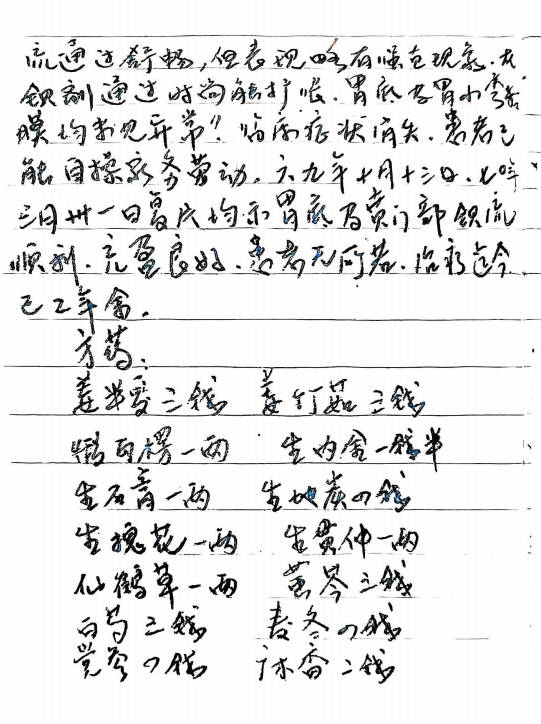 流通过舒畅，但表现略有喉危现象。在
钡剂通过时尚能扩张。胃底及胃小弯粘
膜均未见异常”。临床症状消失。患者已
能自操家务劳动。六九年十月十三日、七〇年
三月卅一日复片均示胃底及贲门部钡流
顺利、充盈良好、患者无所苦。治疗迄今
已二年余。
方药：
姜半夏三钱 姜竹茹三钱
鸭石楞一两 生内金一钱半
生石膏一两 生地炭四钱
生槐花一两 生贯仲一两
仙鹤草一两 黄芩三钱
白芍三钱 麦冬四钱
党参四钱 广木香二钱